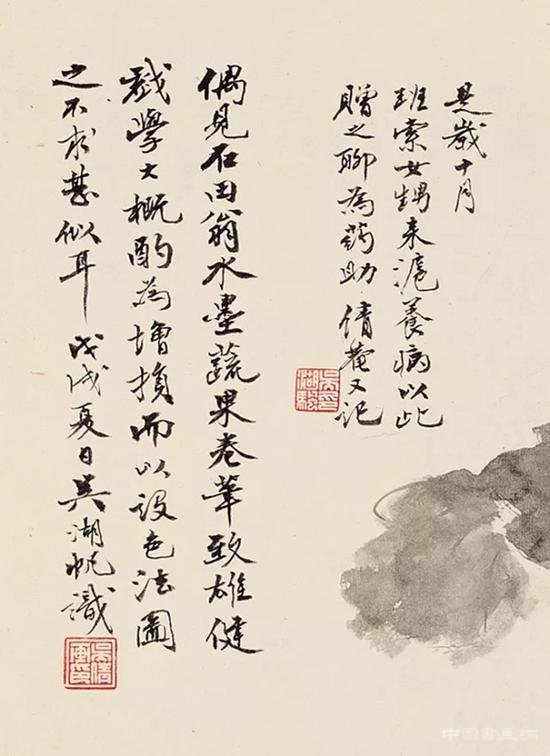 是歲十月
班索女甥來滬養病以此
贈之聊為药助 倩菴又記
偶見石田翁水墨蔬果卷筆致雄健
戲學大概酌為增損而以設色法圖
之不求甚似耳 戊戌夏日吳湖帆識
中國書畫網